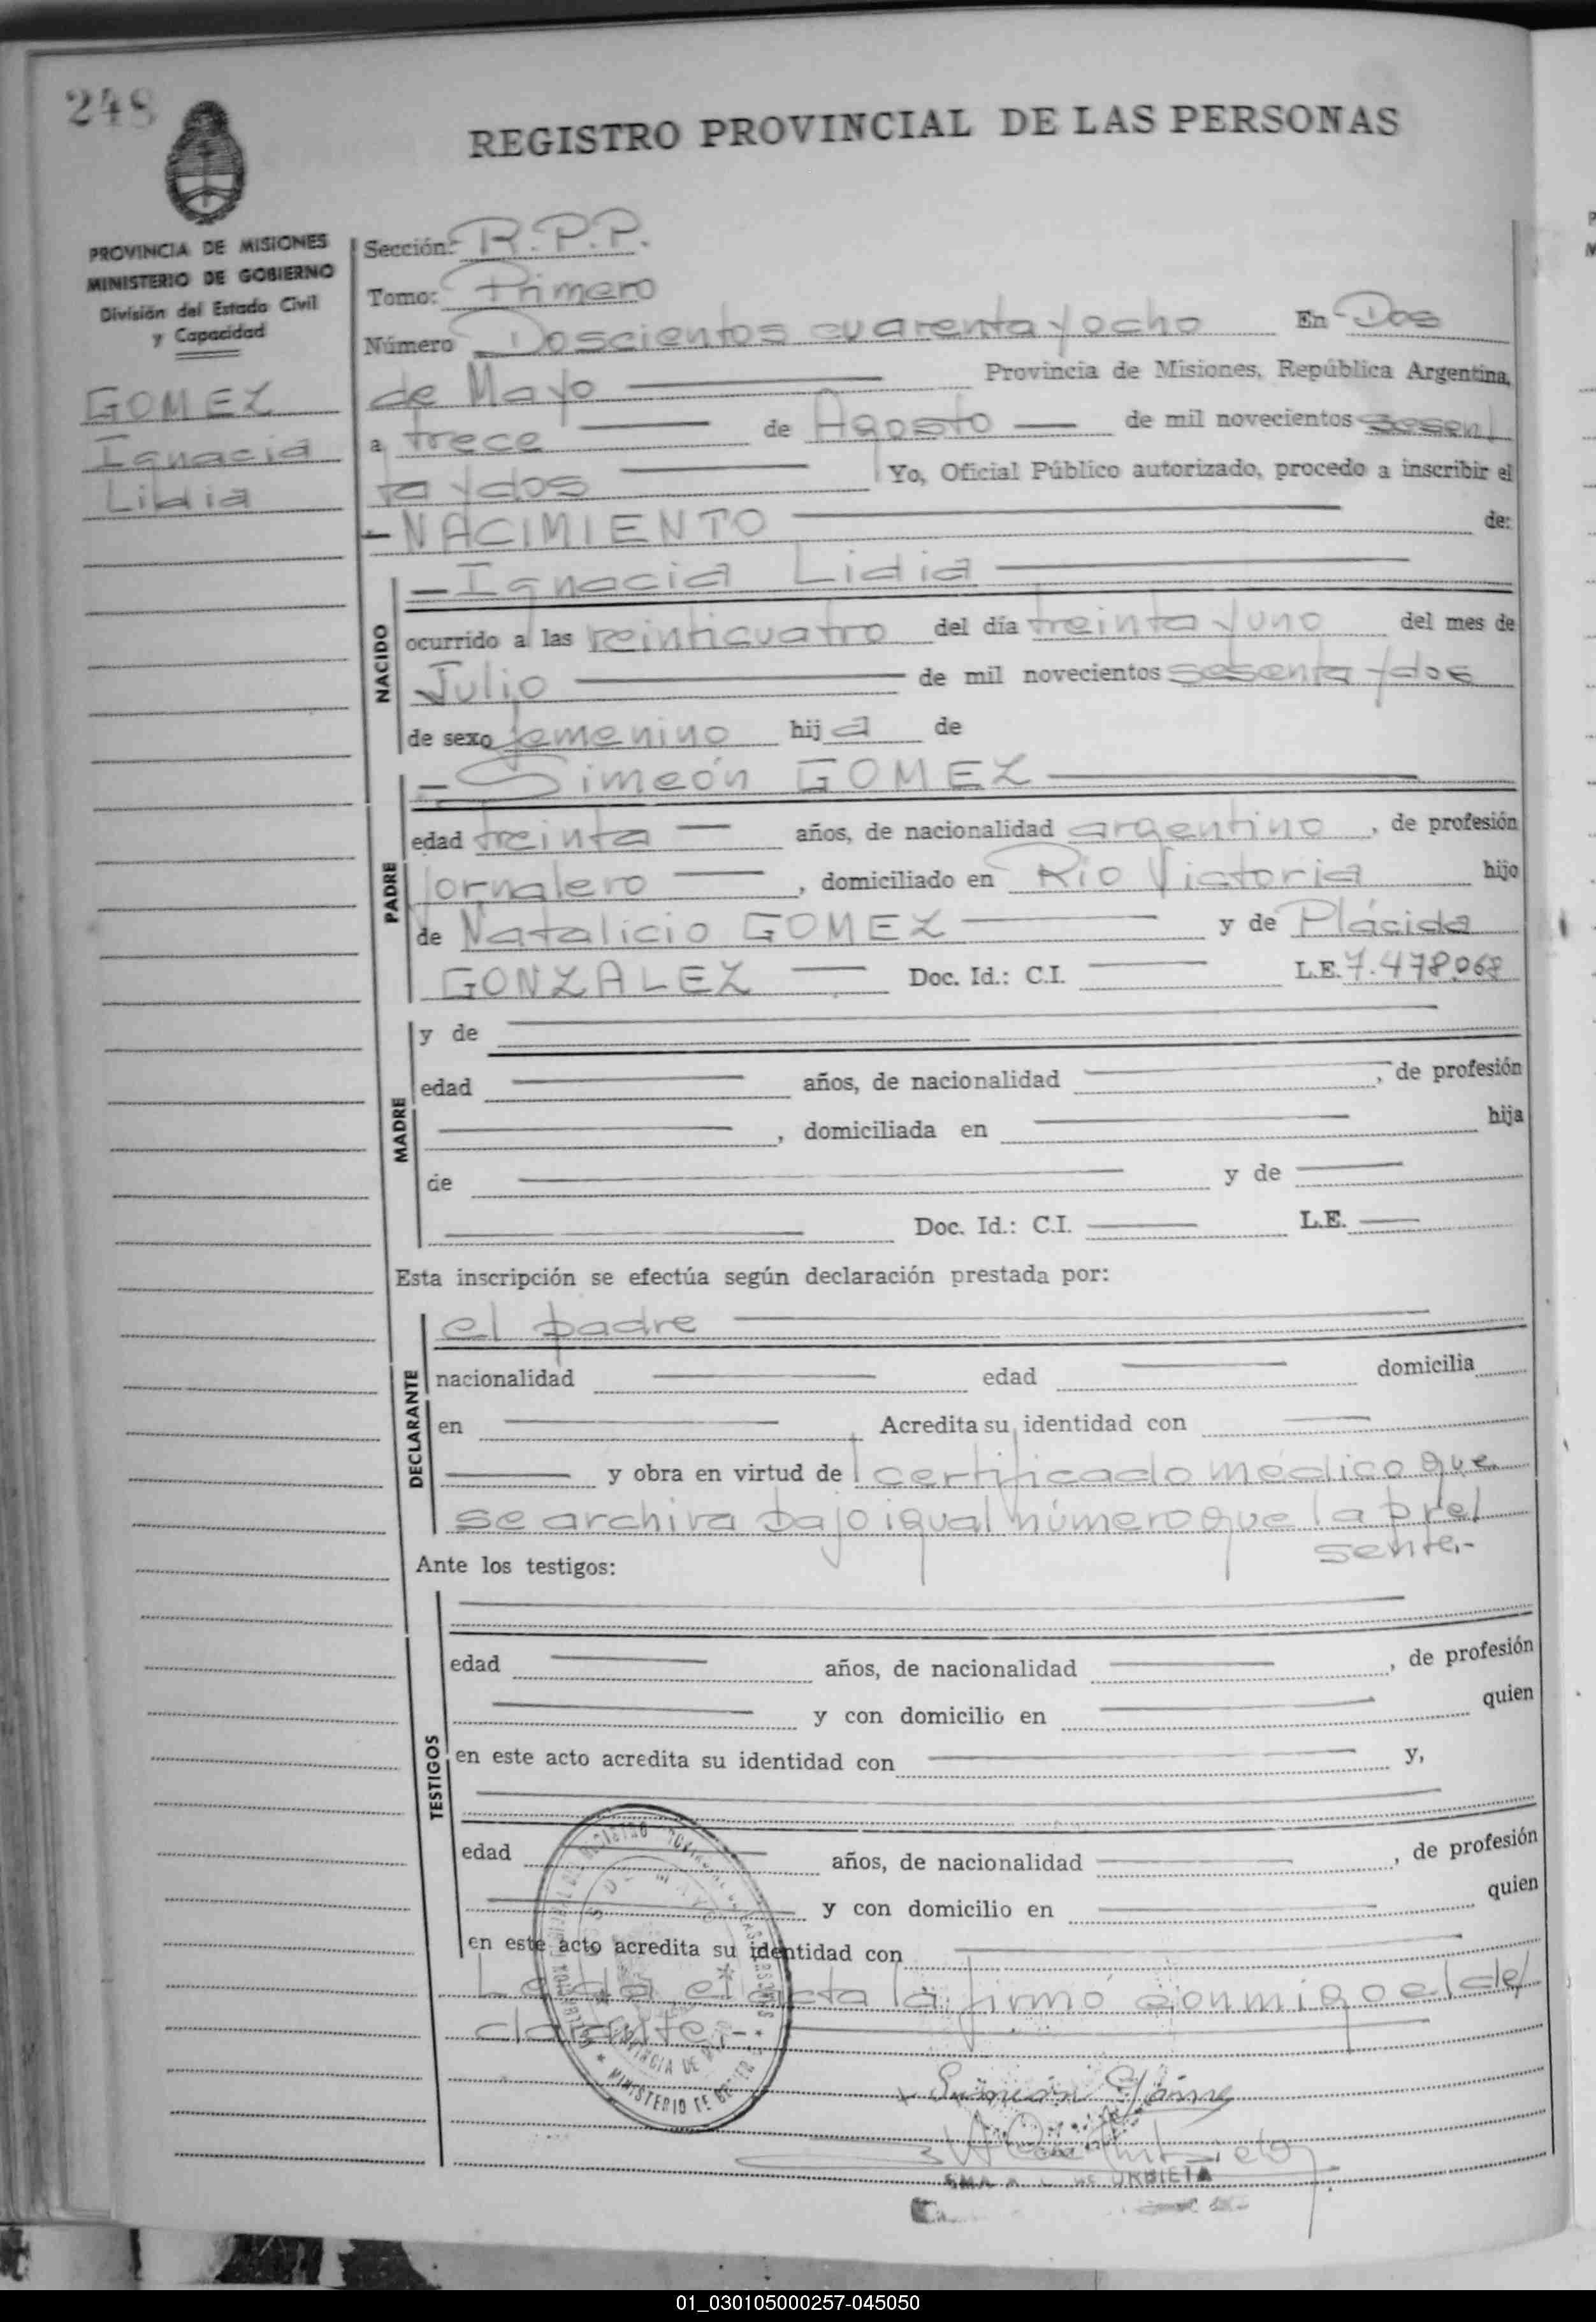 248
REGISTRO PROVINCIAL DE LAS PERSONAS
PROVINCIA DE MISIONES
MINISTERIO DE GOBIERNO
División del Estado Civil
y Capacidad
GOMEZ
Ignacia
Lidia
Sección: R.P.P.
Tomo: Primero
Número Doscientos cuarenta y ocho En Dos
de Mayo Provincia de Misiones, República Argentina,
a trece de Agosto de mil novecientos sesen
ta y dos Yo, Oficial Público autorizado, procedo a inscribir el
NACIMIENTO de:
NACIDO
Ignacia Lidia
ocurrido a las veinticuatro del día treinta y uno del mes de
Julio de mil novecientos sesenta y dos
de sexo femenino hija de
PADRE
Simeón GOMEZ
edad treinta años, de nacionalidad argentino, de profesión
jornalero, domiciliado en Río Victoria hijo
de Natalicio GOMEZ y de Plácida
GONZALEZ Doc. Id.: C.I. L.E. 7.478.068
MADRE
y de
edad años, de nacionalidad , de profesión
, domiciliada en hija
de y de
Doc. Id.: C.I. L.E.
Esta inscripción se efectúa según declaración prestada por:
DECLARANTE
el padre
nacionalidad edad domicilia
en , Acredita su identidad con
y obra en virtud de certificado médico que
se archiva bajo igual número que la pre
sente.-
Ante los testigos:
TESTIGOS
edad años, de nacionalidad , de profesión
y con domicilio en quien
en este acto acredita su identidad con y,
edad años, de nacionalidad , de profesión
y con domicilio en quien
en este acto acredita su identidad con
Leída el acta la firmó conmigo el de
clarante.-
MINISTERIO DE
Simeón Gómez
URBIETA
01_030105000257-045050